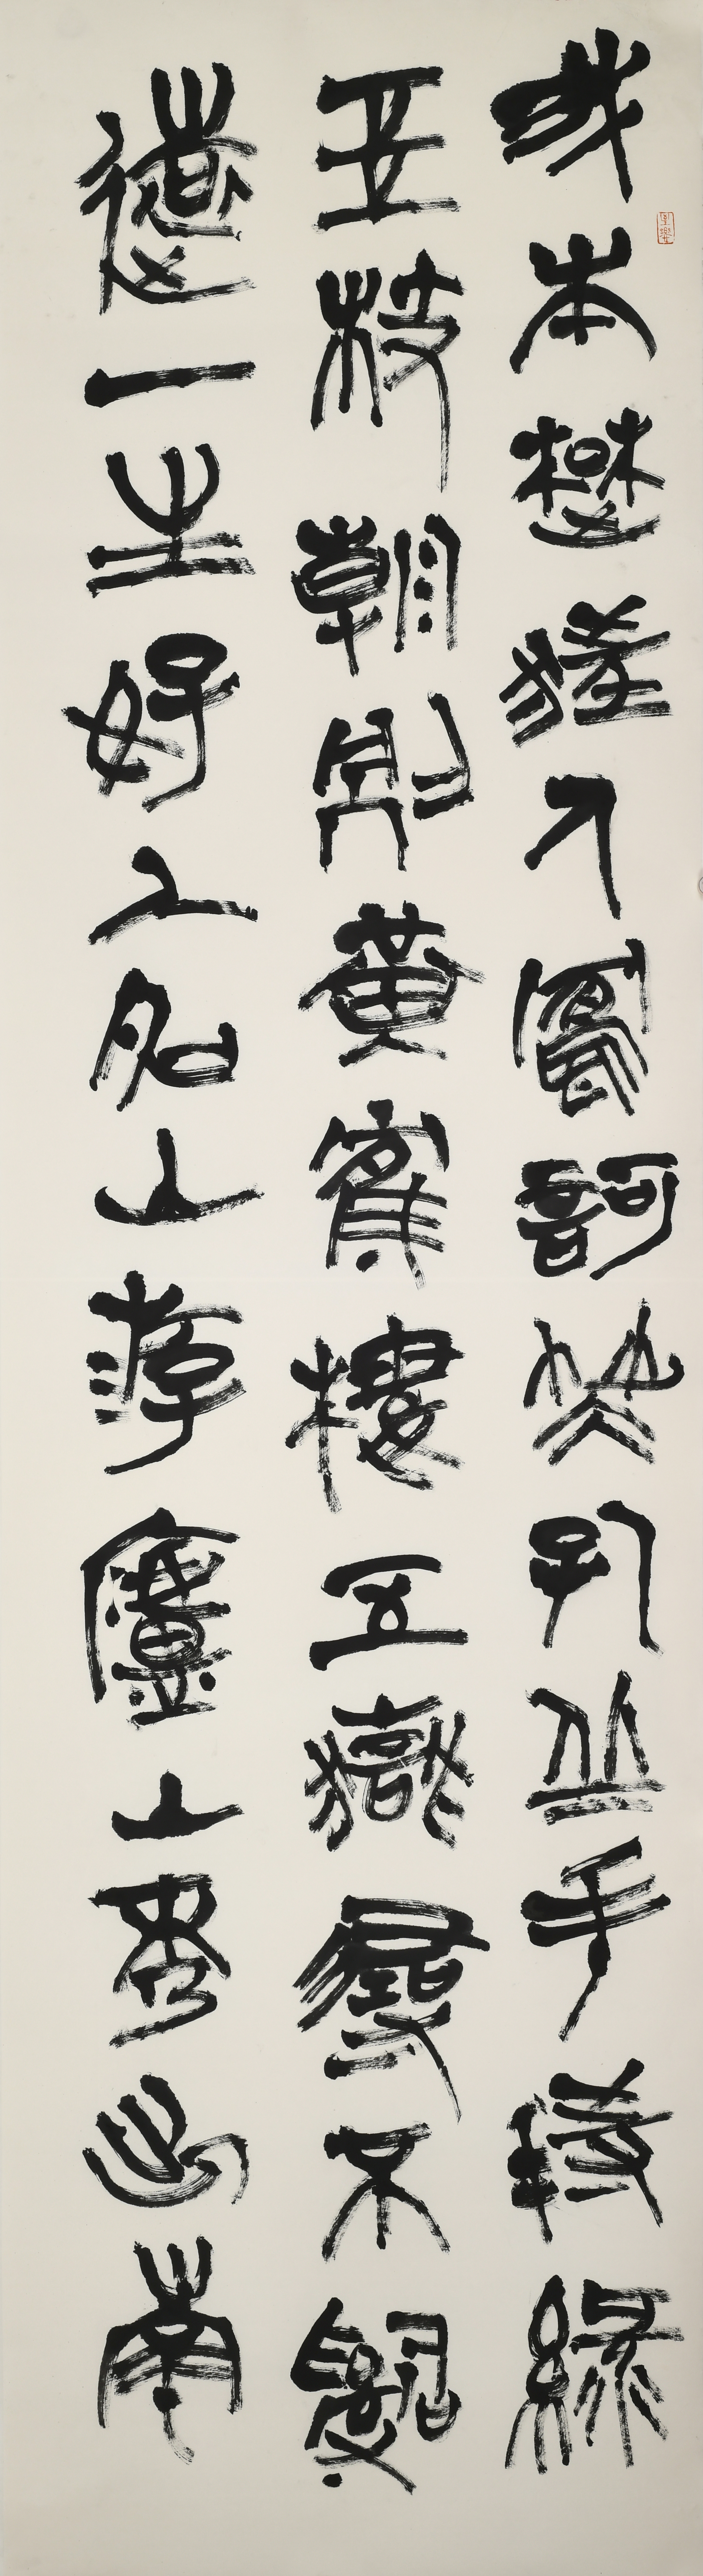 我本楚狂人鳳歌笑孔丘手持綠
玉枝朝別黃鶴樓五嶽尋不
遠一生好入名山游廬山秀出南